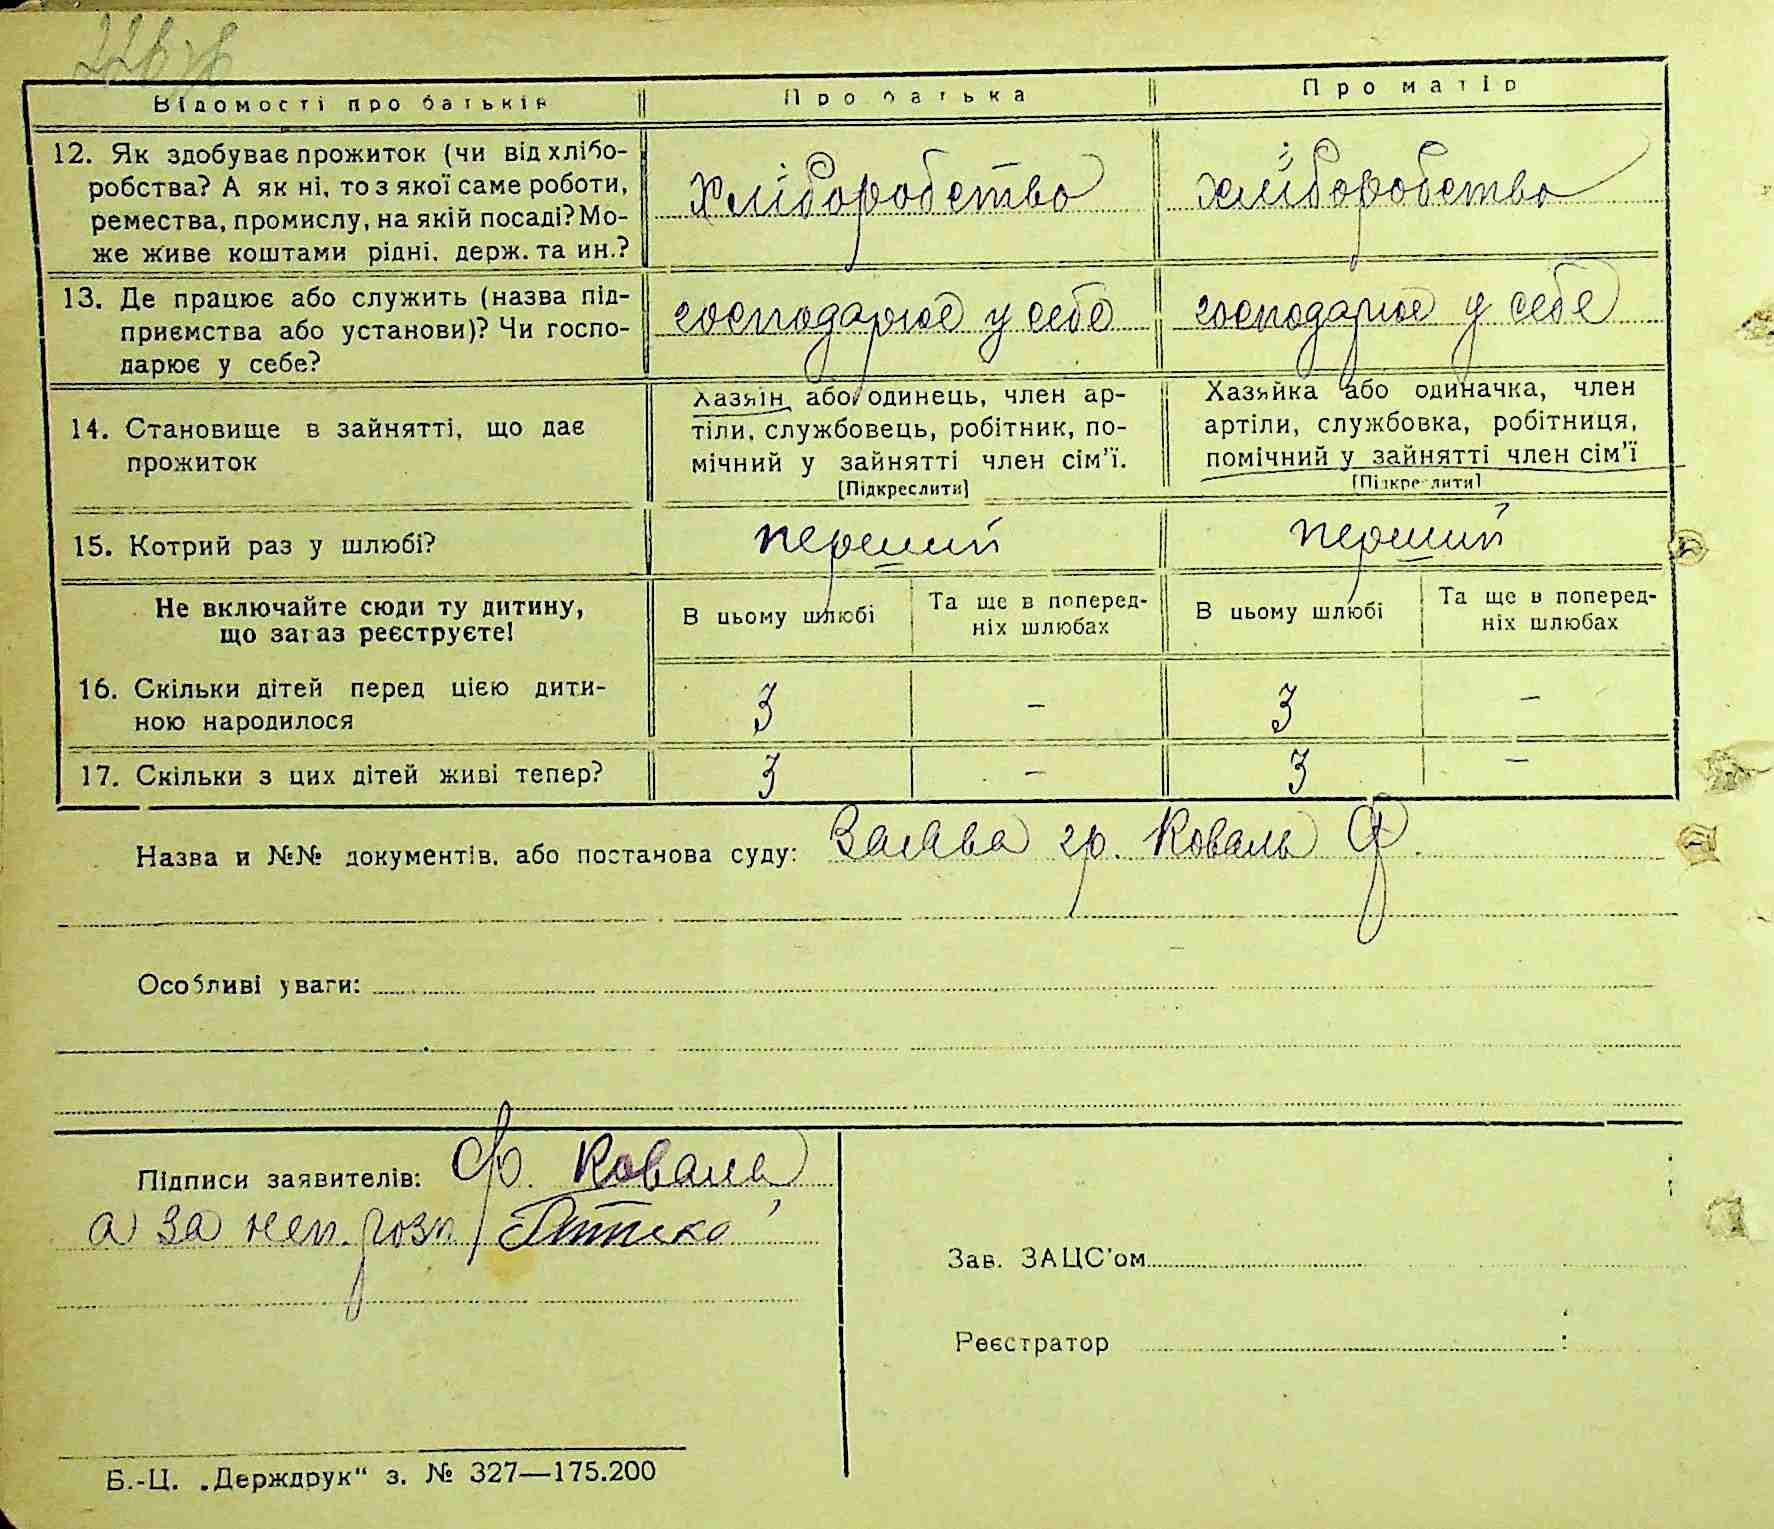 Відомості про батьків Про батька Про матір
12. Як здобуває прожиток (чи від хлібо-
робства? А як ні, то з якої саме роботи,
ремества, промислу, на якій посаді? Мо-
же живе коштами рідні, держ. та ин.?
хліборобство
хліборобство
13. Де працює або служить (назва під-
приємства або установи)? Чи госпо-
дарює у себе?
господарює у себе
господарює у себе
14. Становище в зайнятті, що дає
прожиток
Хазяїн або одинець, член ар-
тіли, службовець, робітник, по-
мічний у зайнятті член сім'ї.
[Підкреслити]
Хазяйка або одиначка, член
артіли, службовка, робітниця,
помічний у зайнятті член сім'ї
[Підкреслити]
15. Котрий раз у шлюбі?
перший
перший
Не включайте сюди ту дитину,
що зараз реєструєте!
В цьому шлюбі
Та ще в поперед-
ніх шлюбах
В цьому шлюбі
Та ще в поперед-
ніх шлюбах
16. Скільки дітей перед цією дити-
ною народилося
3 – 3 –
17. Скільки з цих дітей живі тепер? 3 – 3 –
Назва и №№ документів, або постанова суду: Заява гр. Коваль Ф.
Особливі уваги:
Підписи заявителів: Ф. Коваль
а за неп. розп.
Зав. ЗАЦС'ом
Реєстратор
Б.-Ц. „Держдрук“ з. № 327—175.200